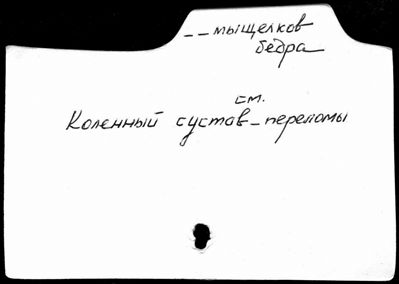 -- мыщелков
бедра
см.
Коленный сустав - переломы